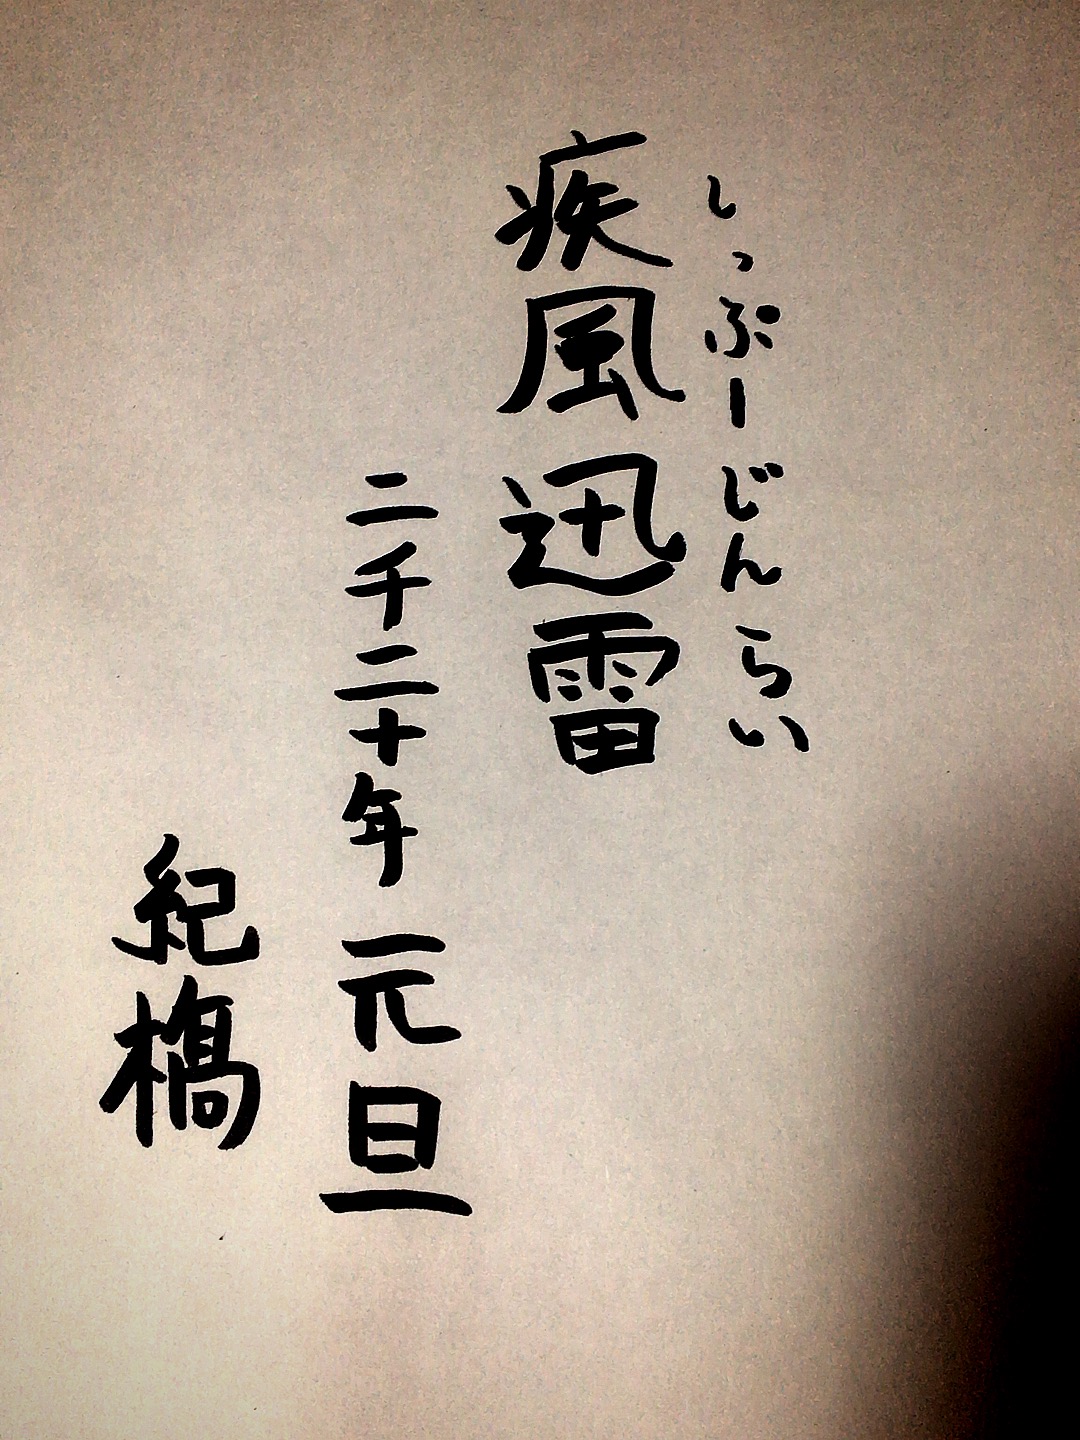 しっぷーじんらい
疾風迅雷
二千二十年元旦
紀槗